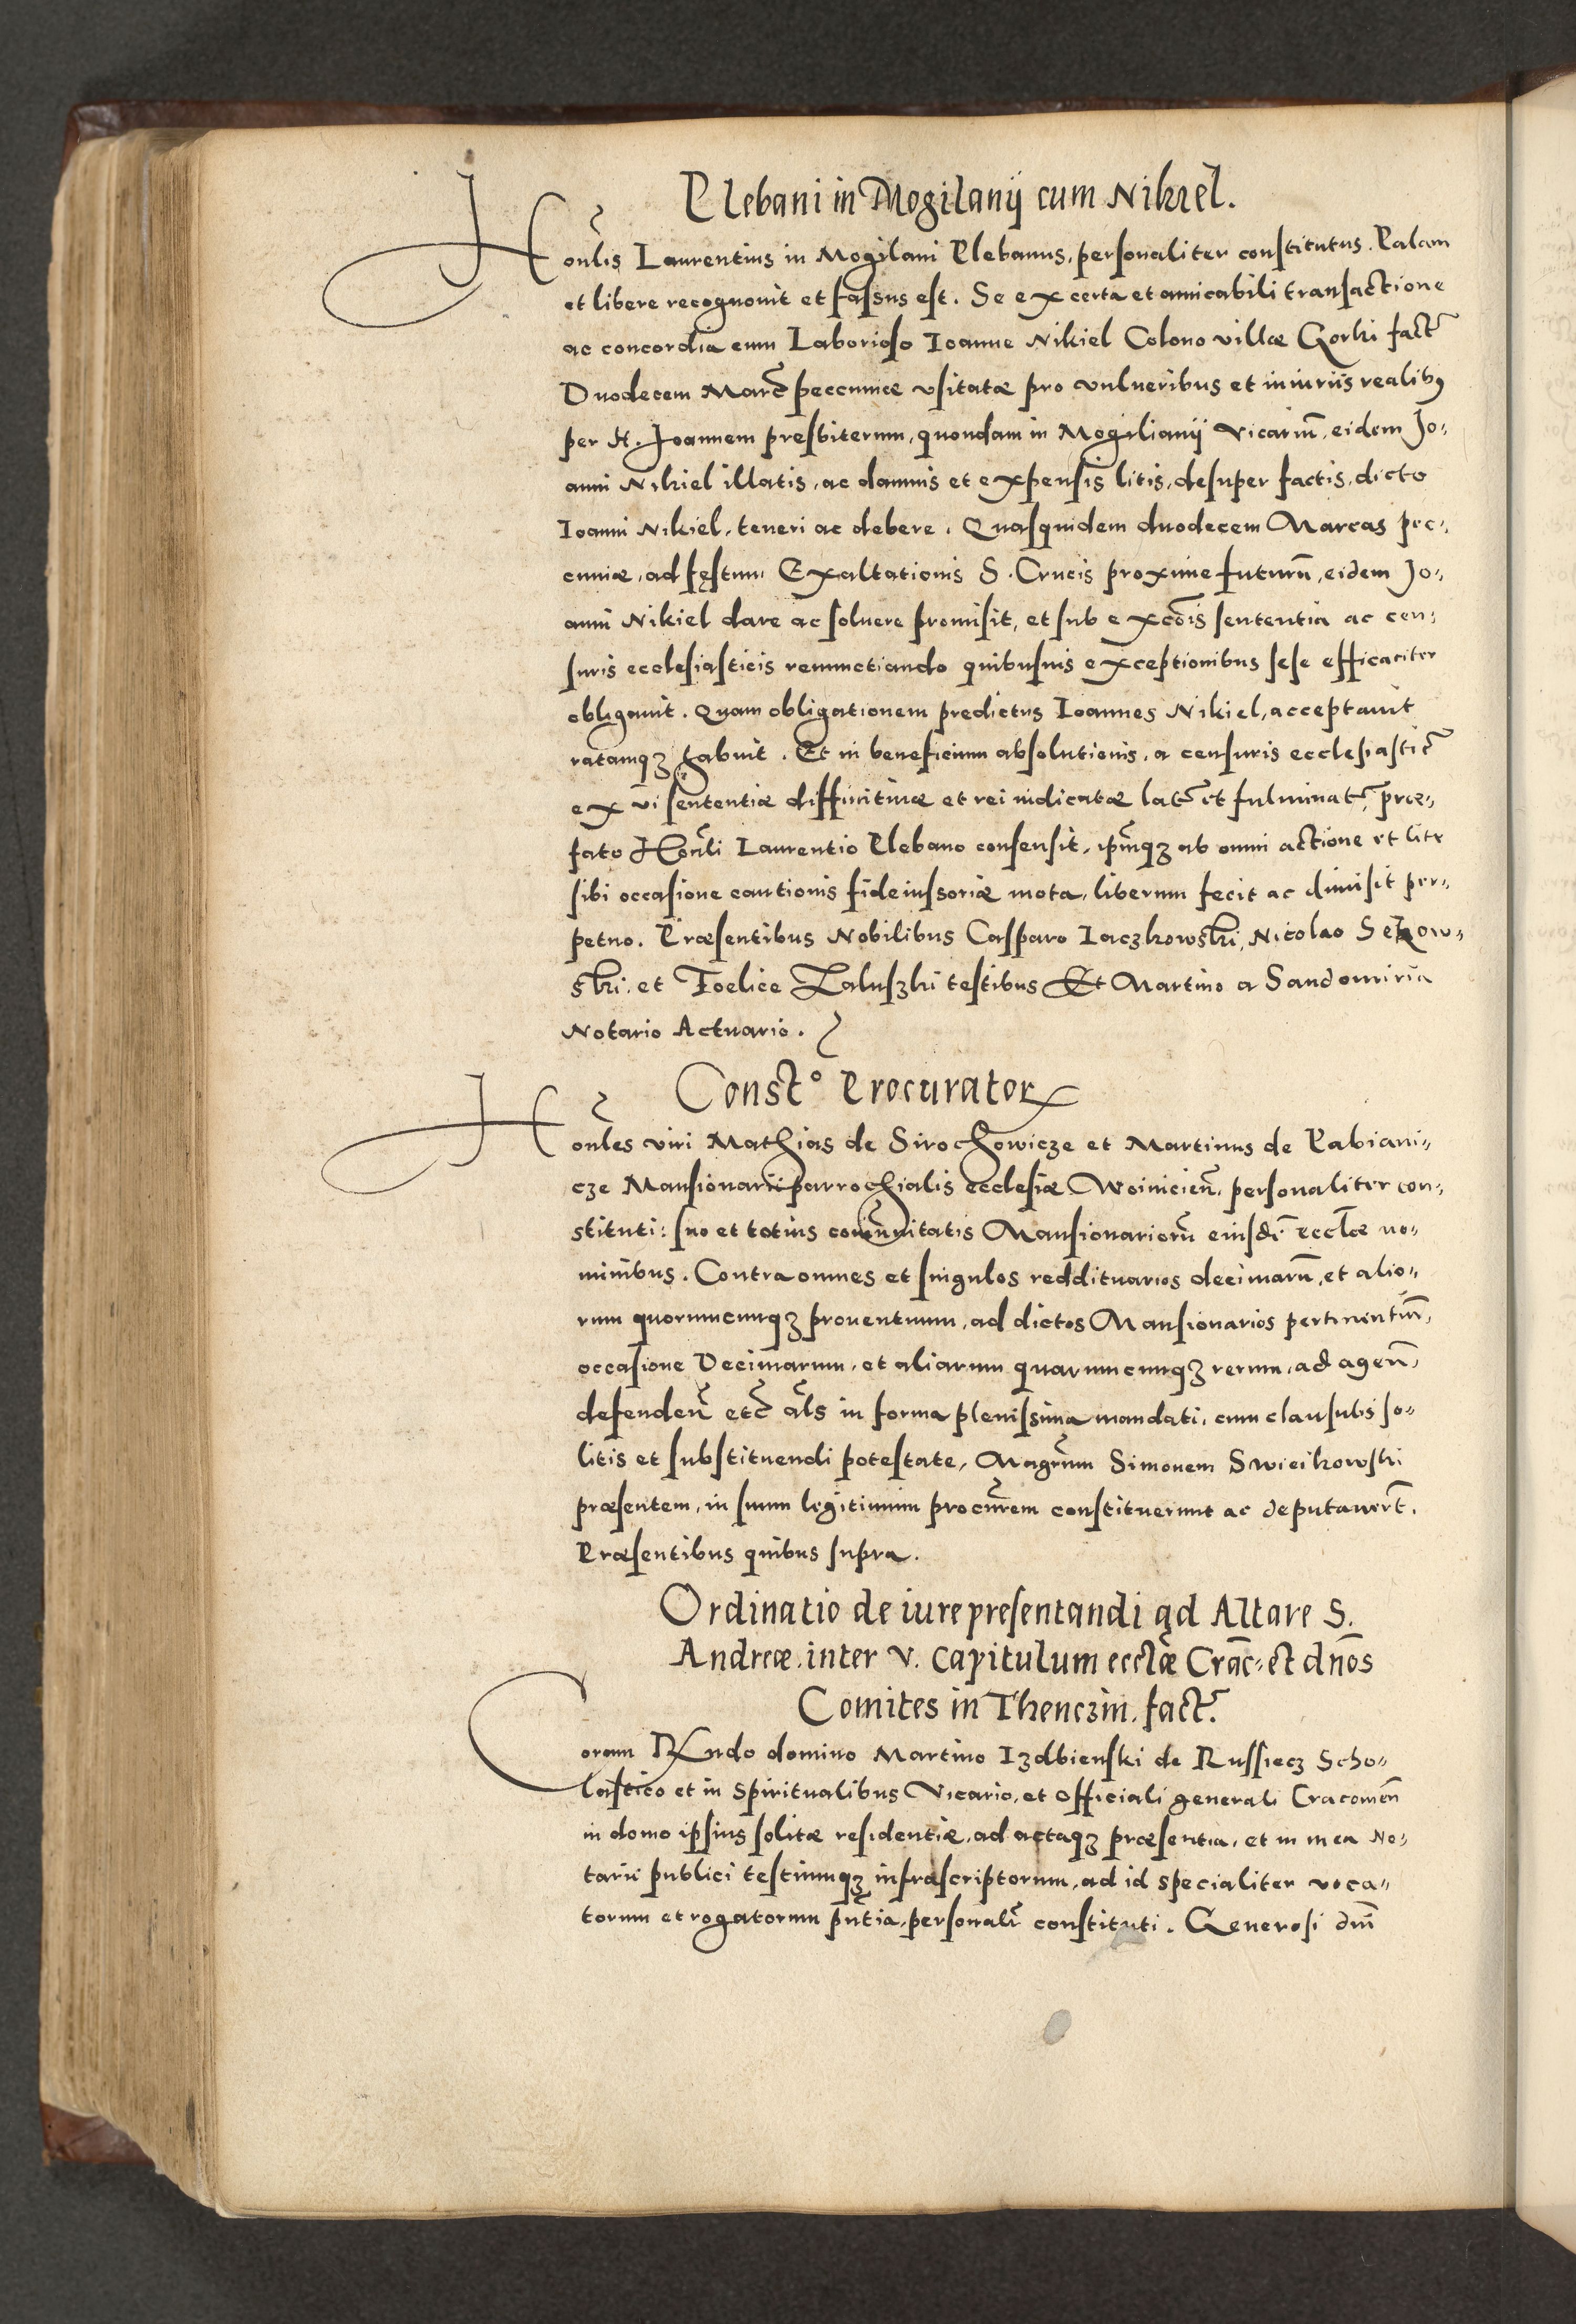 Plebani in Mogilanij cum Nikiel.
Honlis Laurentius in Mogilani Plebanus, personaliter constitutus. Palam
et libere recognouit et fassus est. Se ex certa et amicabili transactione
ac concordia cum Laborioso Ioanne Nikiel Colono villæ Gorki fact
Duodecem Marc peccuniæ vsitatæ pro vulneribus et iniuriis realibꝯ
per H. Joannem presbiterum, quondam in Mogilianij Vicariũ, eidem Jo,,
anni Nikiel illatis, ac damnis et expensis litis, desuper factis, dicto
Ioanni Nikiel, teneri ac debere. Quasquidem duodecem Marcas pec,,
cuniæ, ad fęstum Exaltationis S. Crucis proxime futurũ, eidem Jo,,
anni Nikiel dare ac soluere promisit, et sub excõis sententia ac cen,,
suris ecclesiasticis renunctiando quibusuis exceptionibus sese efficaciter
obligauit. Quam obligationem predictus Ioannes Nikiel, acceptauit
ratamqꝫ habuit. Et in beneficium absolutionis, a censuris ecclesiastic
ex vi sententiæ diffinitiuæ et rei iudicatæ lat et fulminat, præ,,
fato Honli Laurentio Plebano consensit, ipmqꝫ ab omni actione et lite
sibi occasione cautionis fideiussoriæ mota, liberum fecit ac dimisit per,,
petuo. Præsentibus Nobilibus Casparo Iaczkowski, Nicolao Sekow,,
ski, et Foelice Zaluszki testibus Et Martino a Sandomiria
Notario Actuario.
Const° Procurator
Honles viri Mathias de Sirochowicze et Martinus de Pabiani,,
cze Mansionarii parrochialis ecclesiæ Woinicieñ, personaliter con,,
stituti: suo et totius comunitatis Mansionariorũ eiusd eccłæ no,,
minibus. Contra omnes et singulos reddituarios decimarũ, et alio,,
rum quorumcunqꝫ prouentuum, ad dictos Mansionarios pertinentiũ,
occasione Decimarum, et aliarum quarumcunqꝫ rerum, ad ageñ,
defendeñ etc als in forma plenissima mandati, cum clausulis so,,
litis et substituendi potestate, Magrum Simonem Swieikowski
præsentem, in suum legitimum procurem constituerunt ac deputauert.
Præsentibus quibus supra.
Ordinatio de iure presentandi ad Altare S.
Andreæ. inter V. Capitulum ecclæ Crac. et dños
Comites in Thenczin. fact.
Coram Rndo domino Martino Izdbienski de Russiecz Scho,,
lastico et in spiritualibus Vicario, et officiali generali Cracouieñ
in domo ipsius solitæ residentiæ, ad actaqꝫ præsentia, et in mea No,,
tarii publici testiumqꝫ infrascriptorum, ad id specialiter voca,,
torum et rogatorum pntia, personalr constituti. Generosi dni